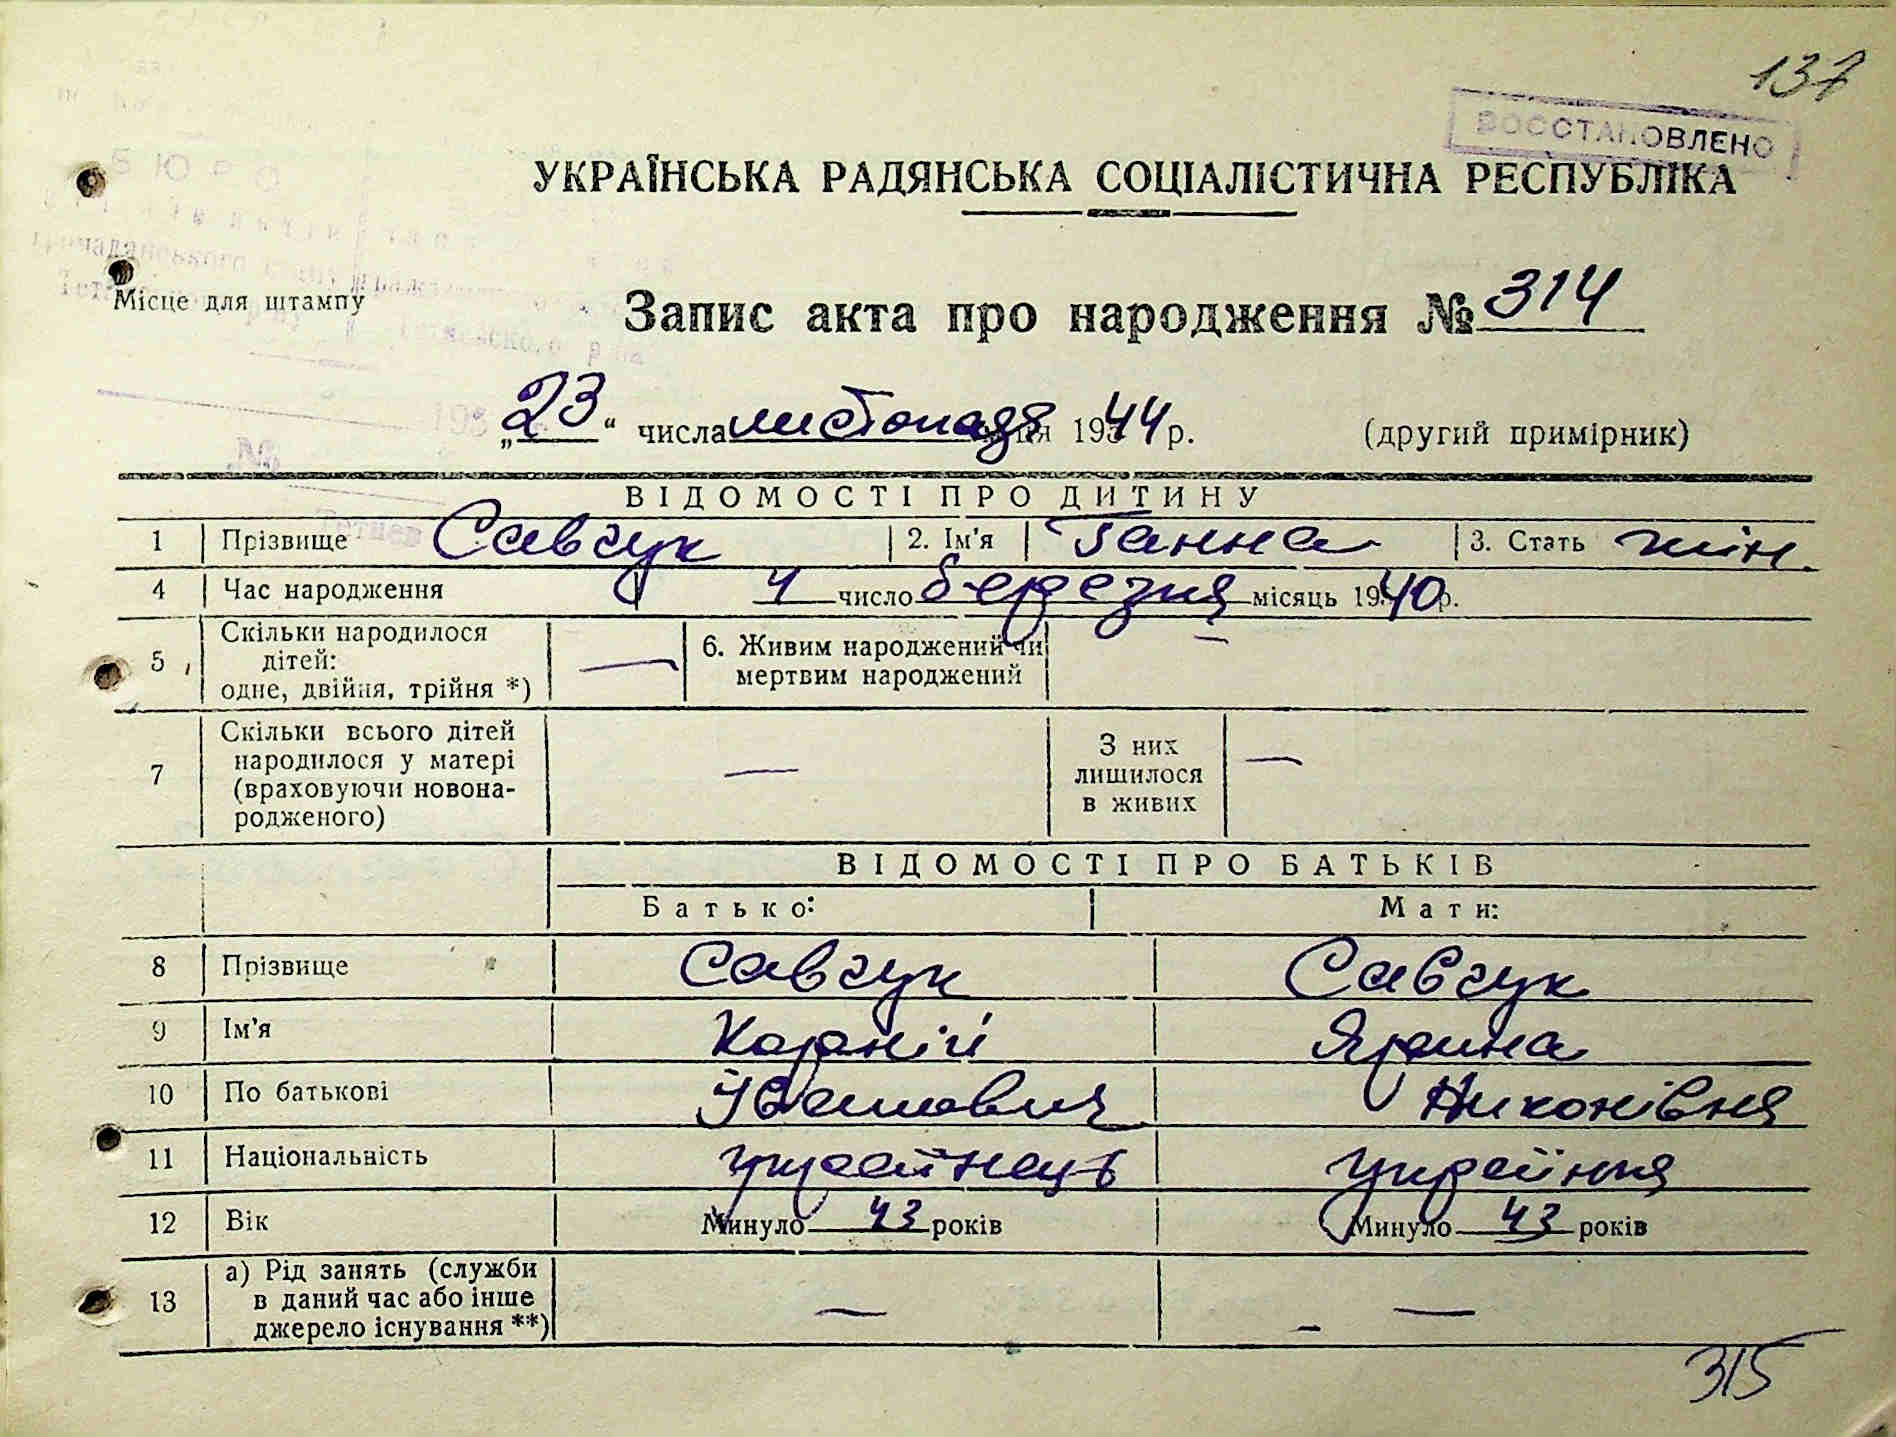 137
ВОССТАНОВЛЕНО
УКРАЇНСЬКА РАДЯНСЬКА СОЦІАЛІСТИЧНА РЕСПУБЛІКА
БЮРО
громадянського
Місце для штампу
Запис акта про народження № 314
„23“ числа листопада 1944 р. (другий примірник)
№
ВІДОМОСТІ ПРО ДИТИНУ
1 Прізвище Савчук 2. Ім'я Ганна 3. Стать жін.
4 Час народження 4 число березня місяць 1940 р.
5 Скільки народилося дітей: одне, двійня, трійня *) — 6. Живим народжений чи мертвим народжений —
7 Скільки всього дітей народилося у матері (враховуючи новонародженого) — З них лишилося в живих —
ВІДОМОСТІ ПРО БАТЬКІВ
Батько: Мати:
8 Прізвище Савчук Савчук
9 Ім'я Корній Ярина
10 По батькові Іванович Никонівна
11 Національність українець українка
12 Вік Минуло 43 років Минуло 43 років
13 а) Рід занять (служби в даний час або інше джерело існування **) — —
315